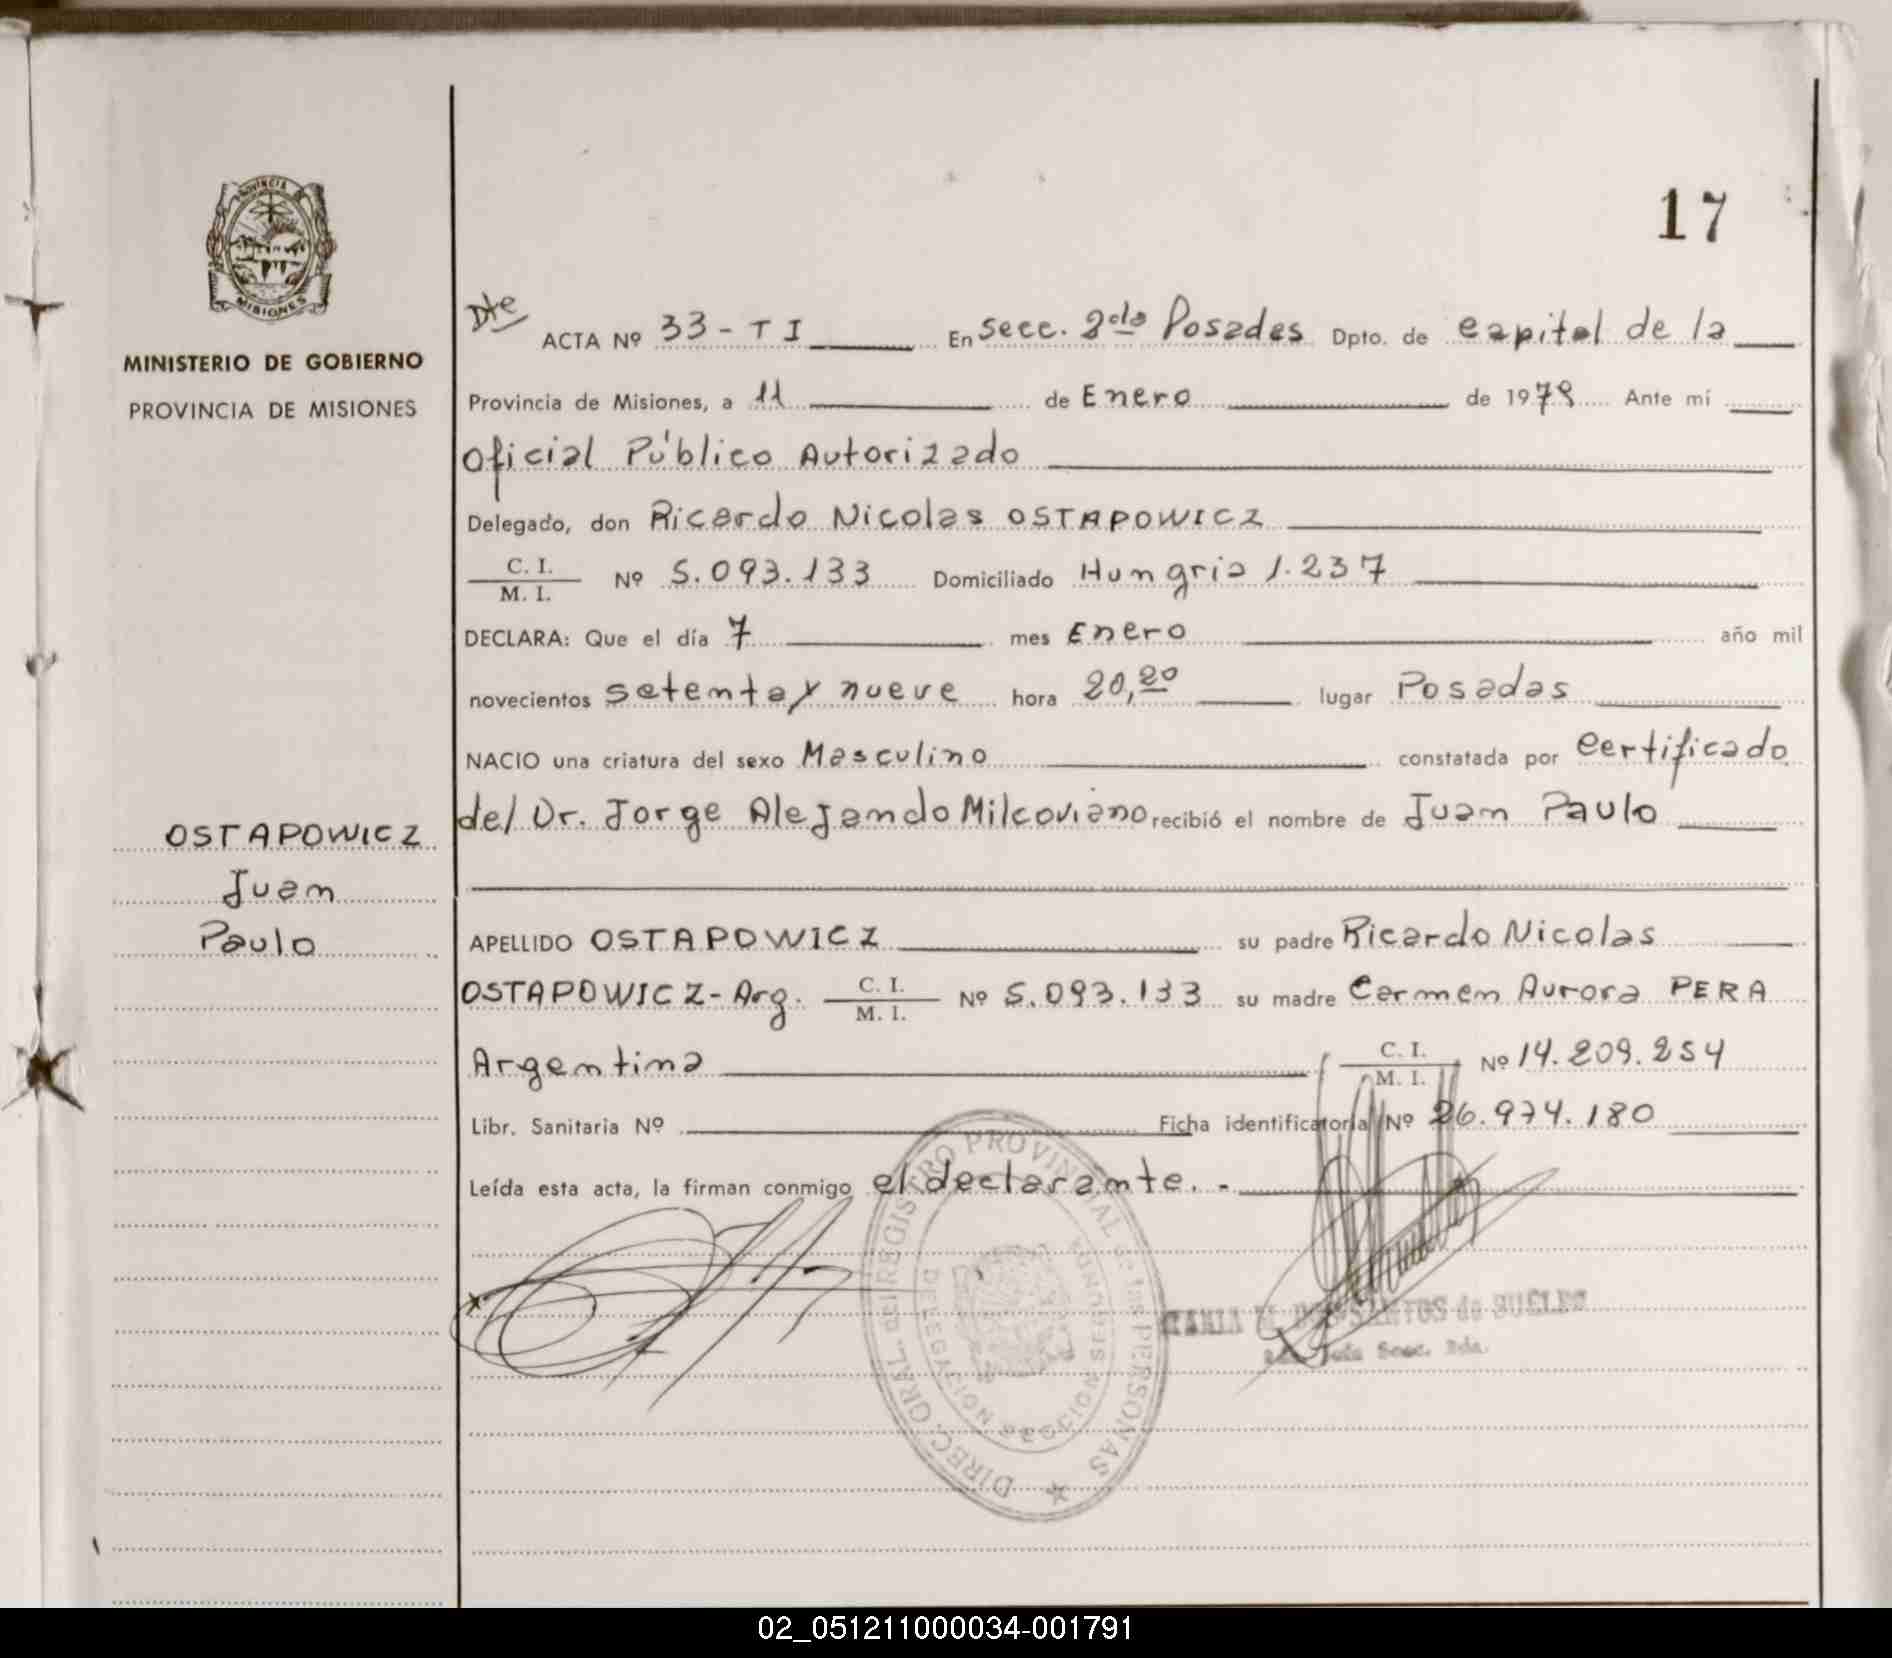 17
PROVINCIA DE
MISIONES
MINISTERIO DE GOBIERNO
PROVINCIA DE MISIONES
Dte
ACTA Nº 33 - T I En Secc. 2da Posadas Dpto. de Capital de la
Provincia de Misiones, a 11 de Enero de 1979 Ante mí
Oficial Público Autorizado
Delegado, don Ricardo Nicolas OSTAPOWICZ
C. I.
M. I. Nº 5.093.133 Domiciliado Hungria 1.237
DECLARA: Que el día 7 mes Enero año mil
novecientos setenta y nueve hora 20,20 lugar Posadas
NACIO una criatura del sexo Masculino constatada por Certificado
del Dr. Jorge Alejando Milcoviano recibió el nombre de Juan Paulo
OSTAPOWICZ
Juan
Paulo
APELLIDO OSTAPOWICZ su padre Ricardo Nicolas
OSTAPOWICZ - Arg. C. I.
M. I. Nº 5.093.133 su madre Carmen Aurora PERA
Argentina C. I.
M. I. Nº 14.209.254
Libr. Sanitaria Nº Ficha identificatoria Nº 26.974.180
Leída esta acta, la firman conmigo el declarante. -
DIREC. GRAL. del REGISTRO PROVINCIAL de las PERSONAS
DELEGACION SECCION SEGUNDA
MARIA M. DOS SANTOS de BUELES
Jefa Secc. 2da.
02_051211000034-001791